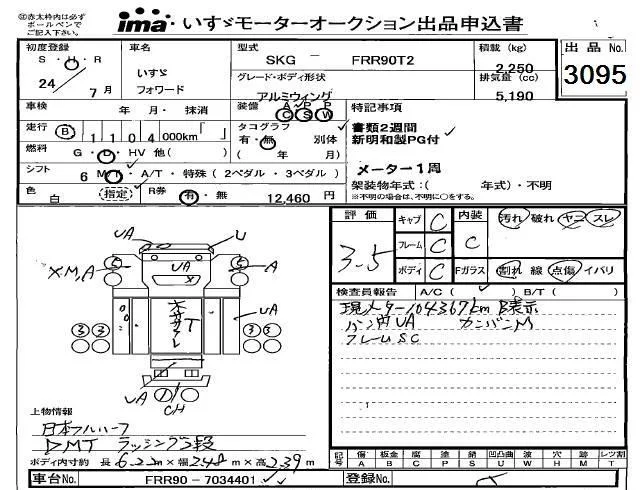 ⓪赤太枠内は必ず
ボールペンで
ご記入下さい。
ima いすゞモーターオークション出品申込書
初度登録 S・H・R 24年 7月
車名 いすゞ フォワード
型式 SKG － FRR90T2
グレード・ボディ形状 アルミウィング
積載 (kg) 2,250
排気量 (cc) 5,190
出品 No. 3095
車検 年 月・ 抹消
装備 A P P
C S W
走行 B 1104 000km「 」
タコグラフ 有・無 別体
( 年 月)
燃料 G・D・HV 他( )
シフト 6 MT・A/T・特殊 (2ペダル・3ペダル)
色 白 (指定) R券 有・無 12,460 円
特記事項
書類2週間
新明和製PG付
メーター1周
架装物年式:( 年式)・不明
※不明の場合は、不明に○をする。
評価 3.5
キャブ C
フレーム C
ボディ C
内装 C
汚れ 破れ ヤニ スレ
Fガラス 割れ 線 点傷 イバリ
検査員報告 A/C( ) B/T( )
現メーター104367km B表示
バン内UA カンバンM
フレームSC
UA U
X,M,A
UA X
A
UA
T
UA
CH
3 3 3 3
上物情報
日本フルハーフ
DMT ラッシング3段
ボディ内寸約 長6.22m×幅2.48m×高2.39m
記号 傷 板金 腐 塗 錆 凹凸曲 波 穴 雑 レツ割
A B C P S U W H M T
車台No. FRR90 － 7034401
登録No.